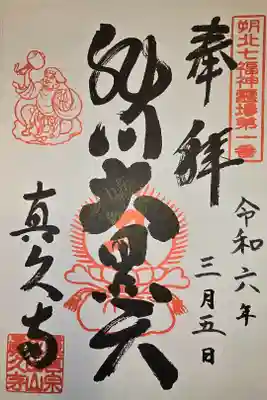 朔北七福神霊場第一番
奉拝
令和六年
三月五日
大黒天
真久寺